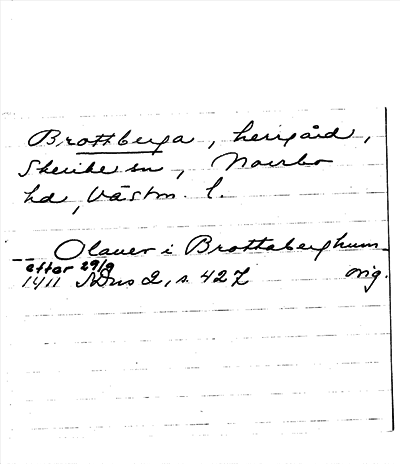 Brottberga, herrgård,
Skerike sn, Norrbo
hd, Västm. l.
-- Olauer i Brottaberghum
efter 29/9
1411 SDns 2, s. 427 orig.